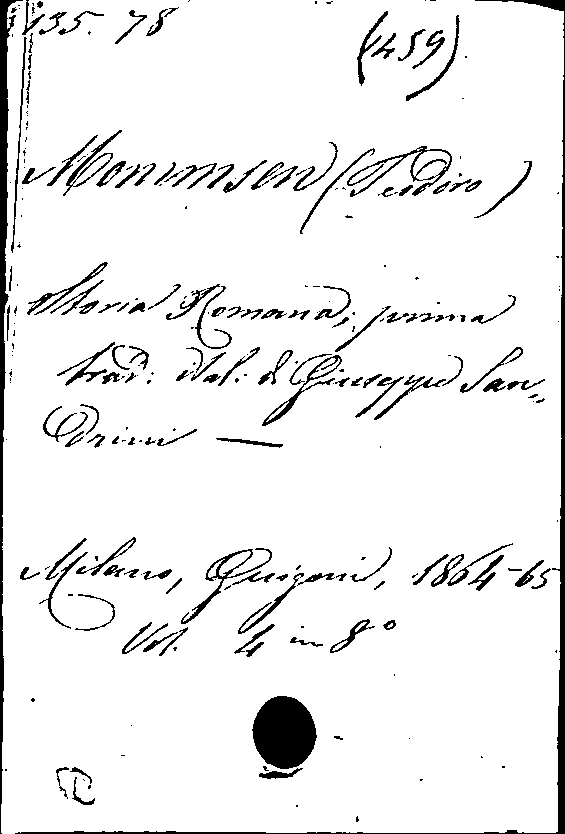 135. 78
(459)
Mommsen (Teodoro)
Storia Romana; prima
trad: ital: di Giuseppe San„
drini —
Milano, Guigoni, 1864-65
Vol. 4 in 8°